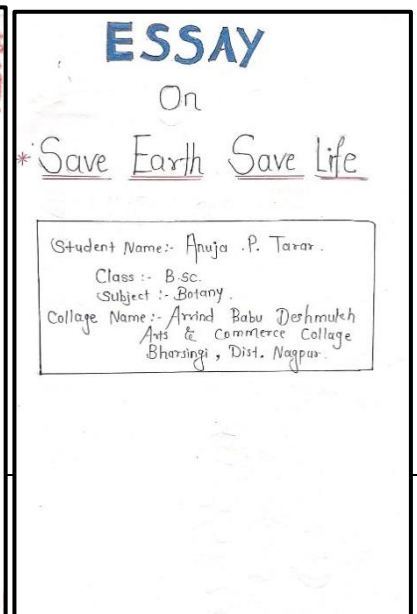 ESSAY
On
* Save Earth Save Life
Student Name:- Anuja .P. Tarar.
Class :- B.Sc.
Subject :- Botany.
Collage Name:- Arvind Babu Deshmukh
Arts & Commerce Collage
Bharsingi, Dist. Nagpur.